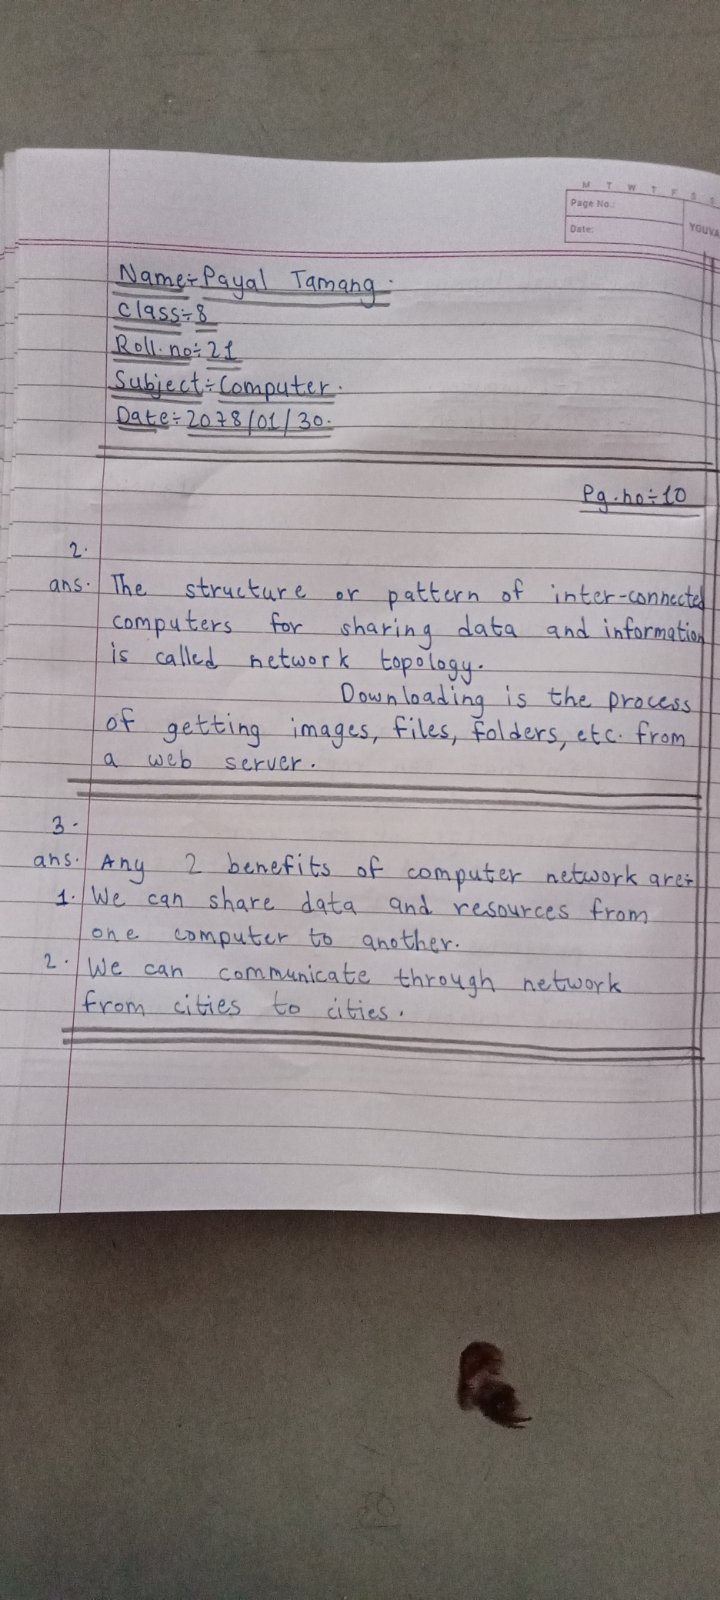 M T W T F S S
Page No.:
Date:
YOUVA
Name÷Payal Tamang.
Class÷8
Roll.no÷21
Subject÷Computer.
Date÷2078/01/30.
Pg.no÷10
2.
ans. The structure or pattern of inter-connected
computers for sharing data and information
is called network topology.
Downloading is the process
of getting images, files, folders, etc. from
a web server.
3.
ans. Any 2 benefits of computer network are÷
1. We can share data and resources from
one computer to another.
2. We can communicate through network
from cities to cities.